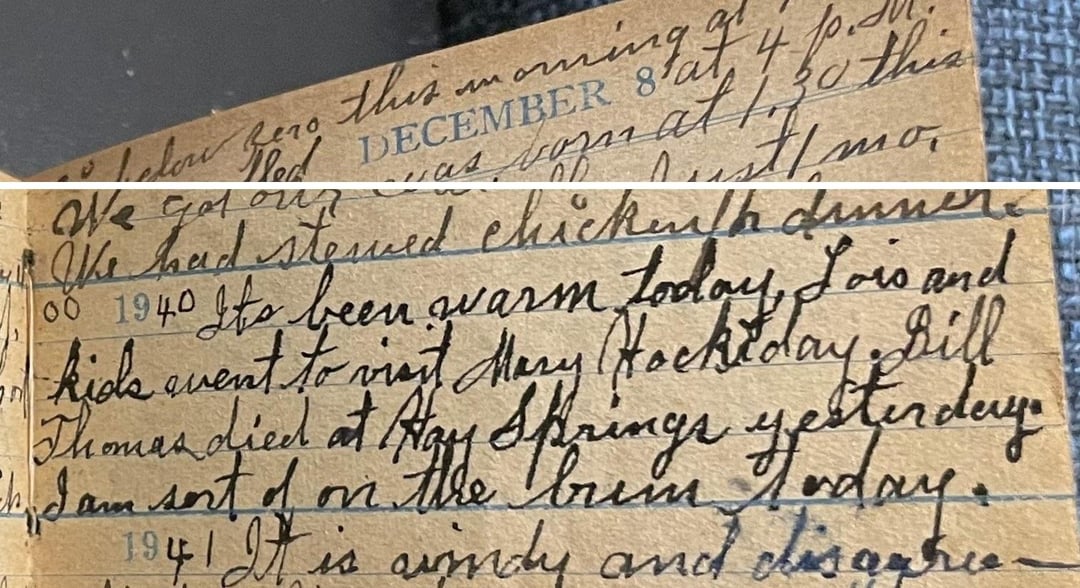 below zero this morning at
DECEMBER 8 at 4 p.m.
was born at 1.30 this
mo.
We got our
We had stewed chicken dinner.
00 1940 Its been warm today, Lois and
kids went to visit Mary Hockiday. Bill
Thomas died at Hay Springs yesterday.
I am sort of on the bum today.
1941 It is windy and disagree-